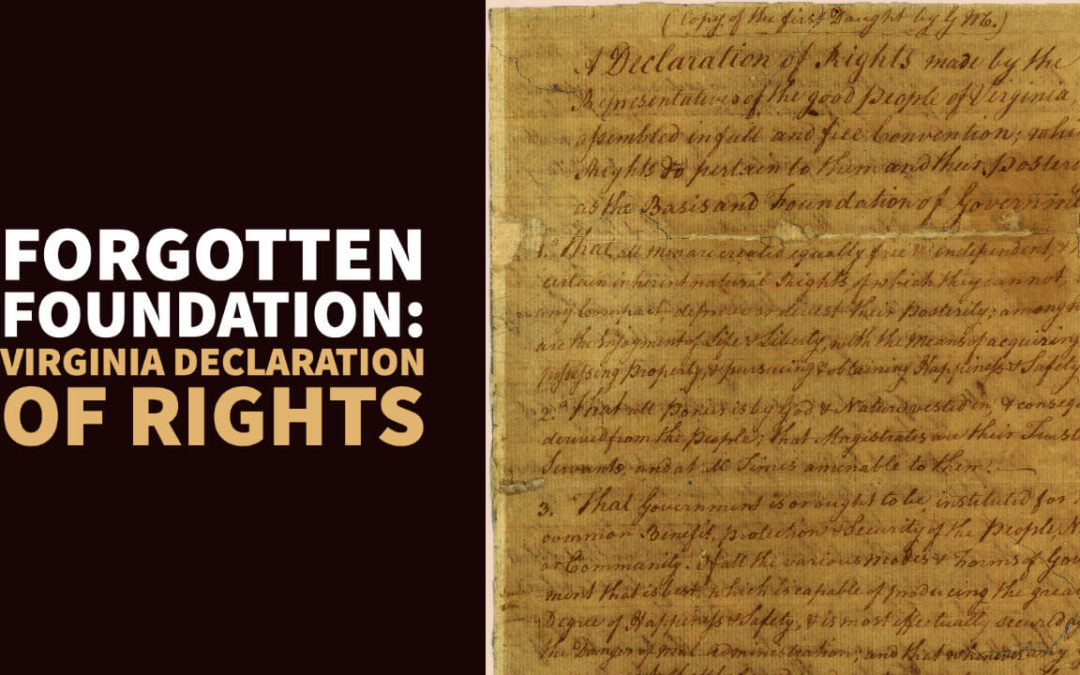 FORGOTTEN
FOUNDATION:
VIRGINIA DECLARATION
OF RIGHTS
(Copy of the first Daught by G M.)
A Declaration of Rights made by the
Representatives of the good People of Virginia
assembled in full and free Convention; whi
Rights do pertain to them and their Posteri
as the Basis and Foundation of Governme
1. That all men are created equally free & independent, &
certain inherent natural Rights, of which they cannot,
any Compact, deprive or divest their Posterity; among
are the Enjoyment of Life & Liberty, with the Means of acquiring
possessing Property, & pursueing & obtaining Happiness & Safety
2. That all Power is by God & Nature vested in, & conseq
derived from the People; that Magistrates are their Trust
Servants, and at all Times amenable to them.
3. That Government is or ought to be, instituted for
common Benefit, protection & Security of the People, N
or Community. Of all the various Modes & Forms of Gov
ment that is best, which is capable of producing the grea
Degree of Happiness & Safety, & is most effectually secured
the Danger of mal-administration; and that whenever any